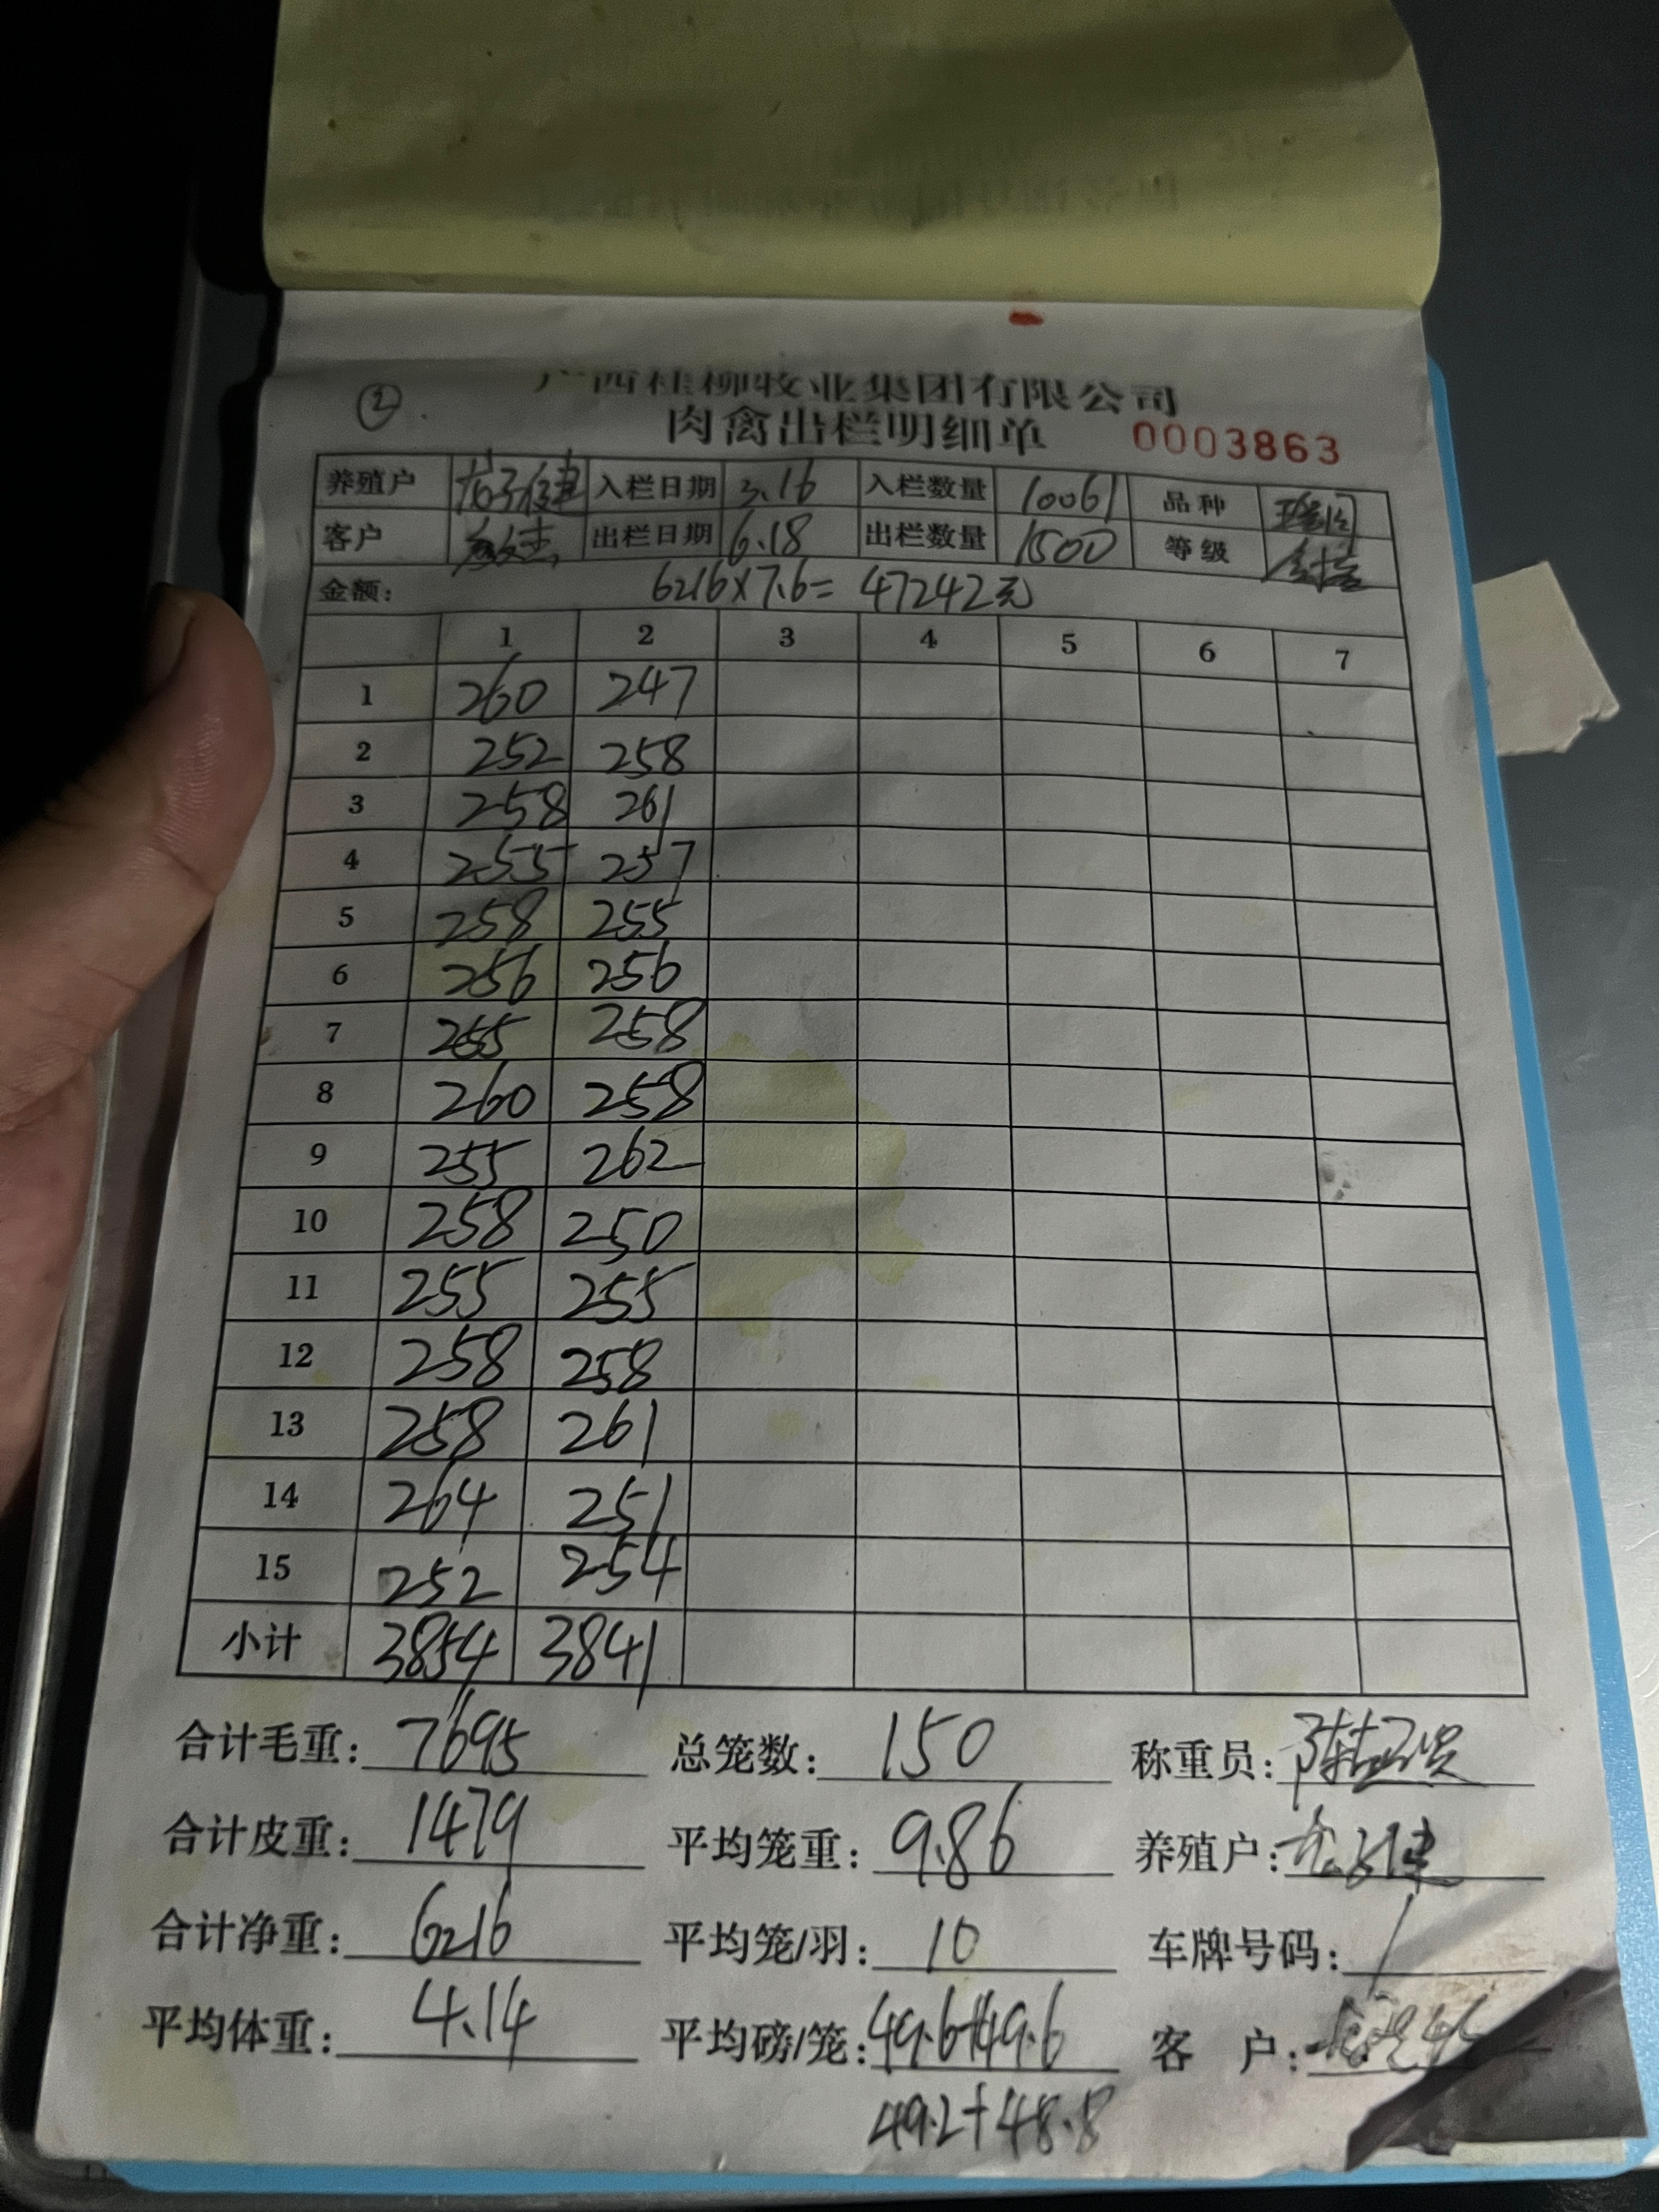 ②
广西桂柳牧业集团有限公司
肉禽出栏明细单 0003863
养殖户 入栏日期 3.16 入栏数量 10061 品种
客户 出栏日期 6.18 出栏数量 1500 等级
金额: 6216×7.6= 47242元
1 2 3 4 5 6 7
1 260 247
2 252 258
3 258 261
4 255 257
5 258 255
6 256 256
7 255 258
8 260 258
9 255 262
10 258 250
11 255 255
12 258 258
13 258 261
14 264 251
15 252 254
小计 3854 3841
合计毛重: 7695 总笼数: 150 称重员:
合计皮重: 1479 平均笼重: 9.86 养殖户:
合计净重: 6216 平均笼/羽: 10 车牌号码: /
平均体重: 4.14 平均磅/笼: 49.6+49.6 客 户:
49.2+48.8